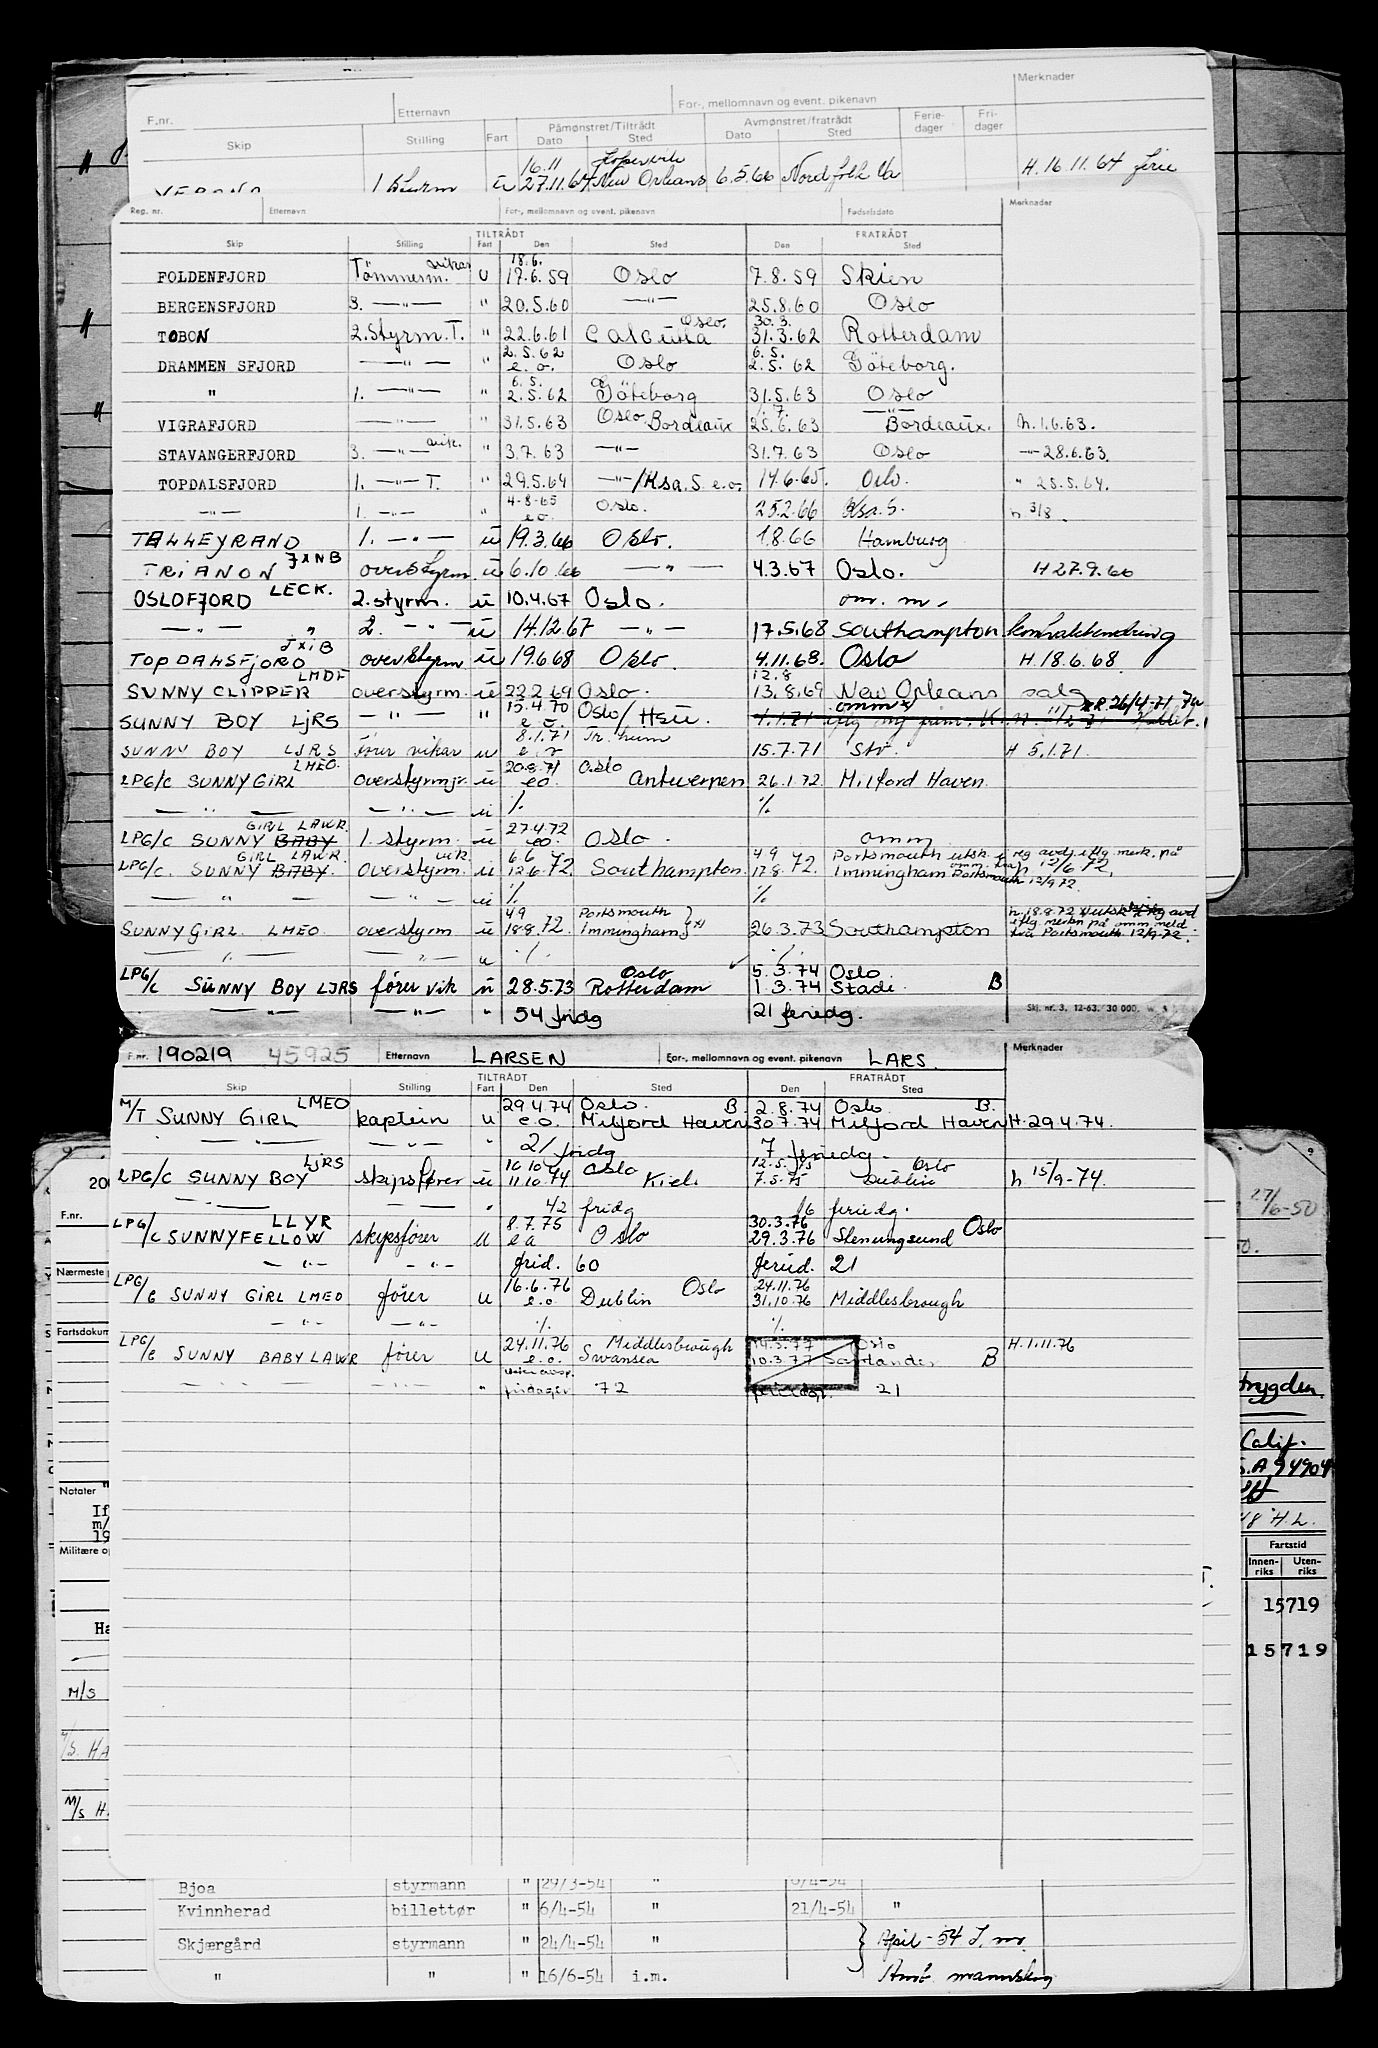 Merknader
For-, mellomnavn og event. pikenavn
F.nr. Etternavn
Påmønstret/Tiltrådt Avmønstret/fratrådt Ferie-dager Fri-dager
Skip Stilling Fart Dato Sted Dato Sted
16.11
1 styrm u 27.11.64 New Orleans 6.5.66 Nordfolk Va H. 16.11.64 ferie
Reg. nr. Etternavn For-, mellomnavn og event. pikenavn Fødselsdato Merknader
TILTRÅDT FRATRÅDT
Skip Stilling Fart Den Sted Den Sted
18.6.
FOLDENFJORD Tømmerm. vikar u 17.6.59 Oslo 7.8.59 Skien
BERGENSFJORD 3. —"— " 20.5.60 —"— 25.8.60 Oslo
Oslo. 30.3.
TOBON 2. styrm. T. " 22.6.61 Calcutta 31.3.62 Rotterdam
2.5.62 6.5.
DRAMMEN SFJORD —"— " e.o. Oslo 2.5.62 Göteborg.
6.5.
" 1. —"— " 2.5.62 Göteborg 31.5.63 Oslo
1.7. —"—
VIGRAFJORD —"— " 31.5.63 Oslo Bordeaux 25.6.63 Bordeaux. h. 1.6.63.
STAVANGERFJORD 3. —"— vik. " 3.7.63 —"— 31.7.63 Oslo —"— 28.6.63.
TOPDALSFJORD 1. —"— T. " 29.5.64 —"—/Ksa. S. e.o. 14.6.65. Oslo. " 28.5.64.
4-8-65
—"— 1. —"— " e.o. Oslo. 25.2.66 Ksa. S. h. 3/8
TALLEYRAND 1. —"— u 19.3.66 Oslo. 1.8.66 Hamburg
TRIANON JXNB overstyrm u 6.10.66 —"— 4.3.67 Oslo. H 27.9.66
OSLOFJORD LECK. 2. styrm. u 10.4.67 Oslo. om. m.
—"— " 2. —"— u 14.12.67 —"— 17.5.68 Southampton kontraktendring
TOPDALSFJORD JXIB overstyrm u 19.6.68 Oslo. 4.11.68. Oslo H. 18.6.68.
LMDF 12.8
SUNNY CLIPPER overstyrm. u 22.2.69 Oslo. 13.8.69 New Orleans salg
15.4.70 omm
SUNNY BOY LJRS —"— " e.o. Oslo/
8.1.71
SUNNY BOY LJRS fører vikar u 15.7.71 H 5.1.71.
LMEO. 20.8.71 Oslo
LPG/C SUNNY GIRL overstyrm jr. u eo Antwerpen 26.1.72 Milford Haven
—"— —"— u ./. ./.
GIRL LAWR. 27.4.72
LPG/C SUNNY BABY 1. styrm. u eo. Oslo. omm
GIRL LAWR. vik. 6.6 4.9 Portsmouth utsk. reg avd. iflg. merk. på
LPG/C. SUNNY BABY. overstyrm. u 12.6.72. Southampton 17.8.72. Immingham omm. fra Portsmouth 12/9 72.
—"— —"— u ./. ./.
4.9 Portsmouth
SUNNY GIRL LMEO. overstyrm u 18.8.72. Immingham 26.3.73 Southampton
h. 18.8.72 utsk reg avd iflg merkn på omm.meld fra Portsmouth 12/9.72.
—"— —"— u ./. ./.
Oslo 5.3.74 Oslo.
LPG/C SUNNY BOY LJRS fører vik u 28.5.73 Rotterdam 1.3.74 Stade. B
—"— —"— " 54 fridg 21 feriedg.
Skj. nr. 3. 12-63. 30 000.
F.nr. 190219 45925 Etternavn LARSEN For-, mellomnavn og event. pikenavn LARS. Merknader
TILTRÅDT FRATRÅDT
Skip Stilling Fart Den Sted Den Sted
LMEO 29.4.74 Oslo. B. 2.8.74 Oslo. B.
M/T SUNNY GIRL kaptein u e.o. Milford Haven 30.7.74 Milford Haven H. 29.4.74.
—"— —"— " 21 fridg 7 feriedg.
LJRS 10.10.74 Oslo 12.5.75 Oslo
LPG/C SUNNY BOY skipsfører u 11.10.74 Kiel. 7.5.75 Dublin h 15/9-74.
—"— —"— " 42 fridg 16 feriedg.
LLYR 8.7.75 30.3.76
LPG/C SUNNYFELLOW skipsfører u e.o Oslo 29.3.76 Stenungsund Oslo
—"— —"— frid. 60 feried. 21
16.6.76 24.11.76
LPG/C SUNNY GIRL LMEO fører u e.o. Dublin Oslo 31.10.76 Middlesbrough
—"— —"— ./. ./.
24.11.76 Middlesbrough 14.3.77 Oslo
LPG/C SUNNY BABY LAWR fører u e.o. Swansea 10.3.77 B H. 1.11.76
—"— —"— " fridager 72 feriedgr. 21
200
F.nr.
Nærmeste
Fartsdokum
Notater
If
m/
19
Militære op
Ha
M/S
M/S. HA
M/S H.
27/6-50
trygden
Calif.
S.A 94904
H.L.
Fartstid
Innen-riks Uten-riks
15719
15719
Bjoa styrmann " 29/3-54 " 6/4-54
Kvinnherad billettør " 6/4-54 " 21/4-54 "
Skjærgård styrmann " 24/4-54 " April - 54 I. m.
" " " 16/6-54 i.m. mannskap